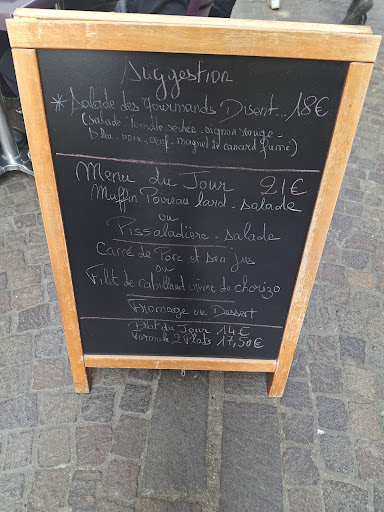 Suggestion
* Salade des Gourmands Disent... 18€
(salade Tomate séchée - oignon rouge -
Bleu - noix - oeuf - magret de canard fumé)
Menu du Jour 21€
Muffin Poireau lard - salade
ou
Pissaladière - salade
Carré de Porc et son jus
ou
Filet de cabillaud crème de chorizo
Fromage ou Dessert
Plat du Jour 14€
Formule 2 Plats 17,50€